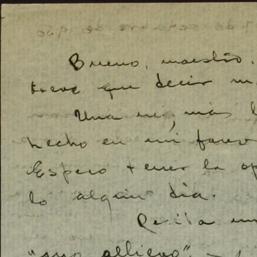 Bueno, maestro.
tiene que decir m
Una vez más l
hecho en mi favor
Espero tener la op
lo algún día.
Reciba un
"suo allievo" –